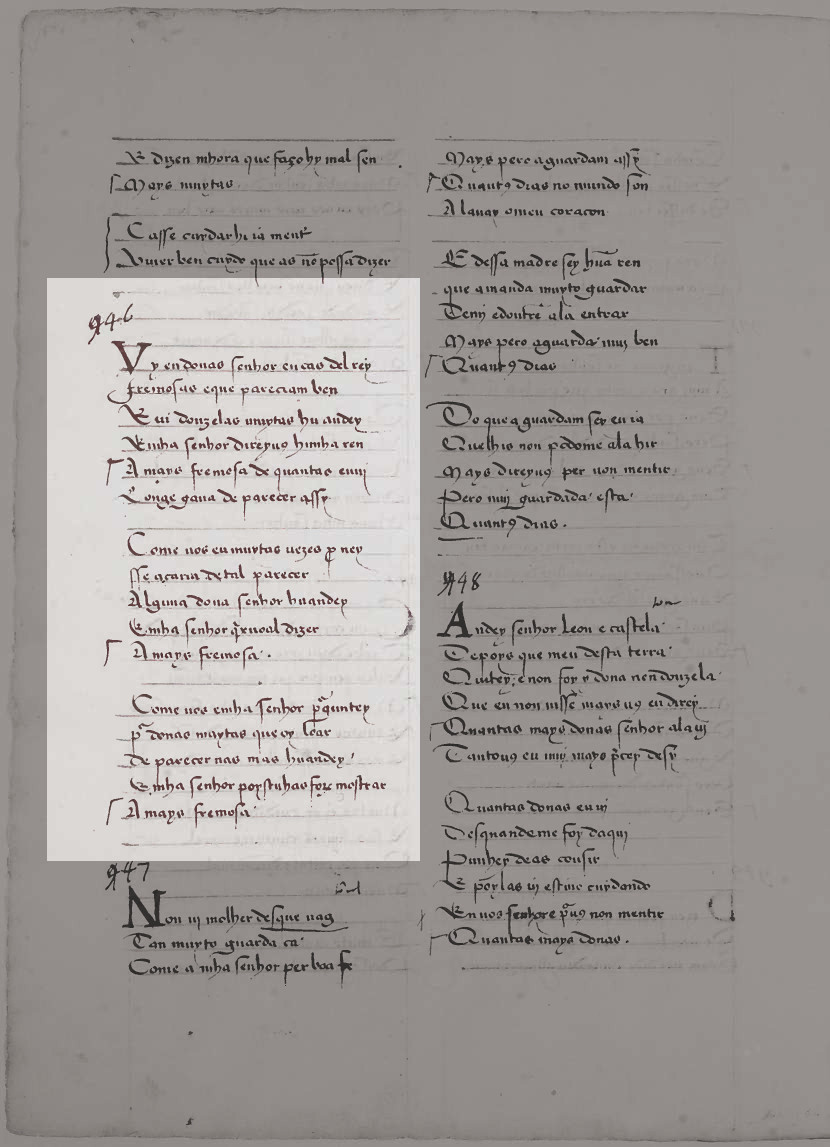 E dizen mhora que faço hy mal sen
Mays muytas
Casse cuydarhi ia ment
Viuer ben cuydo que as nō possa dizer
946
Vy en donas senhor en cas del rey
fremosas e que pareciam ben
E ui donzelas muytas hu andey
E mha senhor direyuꝯ hūnha ren
A mays fremosa de quantas euuij
Longe gaua de parecer assy
Come uos eu muytas uezes ꝓuey
sse acaria de tal parecer
Alguna dona senhor hu andey
E mha senhor dizer
A mays fremosa.
Come uos emha senhor p̄guntey
donas muytas que oy loar
de parecer nas mas hu andey
E mha senhor poys mostrar
A mays fremosa
947
Non uj molher desque naç
Tan muyto guarda ca
Come a mha senhor per boa fe
Mays pero aguardam assy
Quantꝯ dias no mundo son
Alauay o meu coraçon
E dessa madre sey hūa ren
que a manda muyto guardar
Demj e doutrē ala entrar
Mays pero aguarda muj ben
Quantꝯ dias
Do que aguardam sey eu ia
Quelhis non podome ala hir
Mays direyuꝯ per non mentir
Pero muj guardada esta
Quantꝯ dias.
948
Andey senhor Leon e castela
Depoys que meu desta terra
Quitey, e non foy y dona nen donzela
Que eu non uisse mays uꝯ eu direy
Quantas mays donas senhor ala uj
Tantouꝯ eu muj mays p̄cey desy
Quantas donas eu uj
Desquandeme foy daquj
Punhey deas cousir
E poylas uj estiue cuydando
En uos senhor e non mentir
Quantas mays donas.